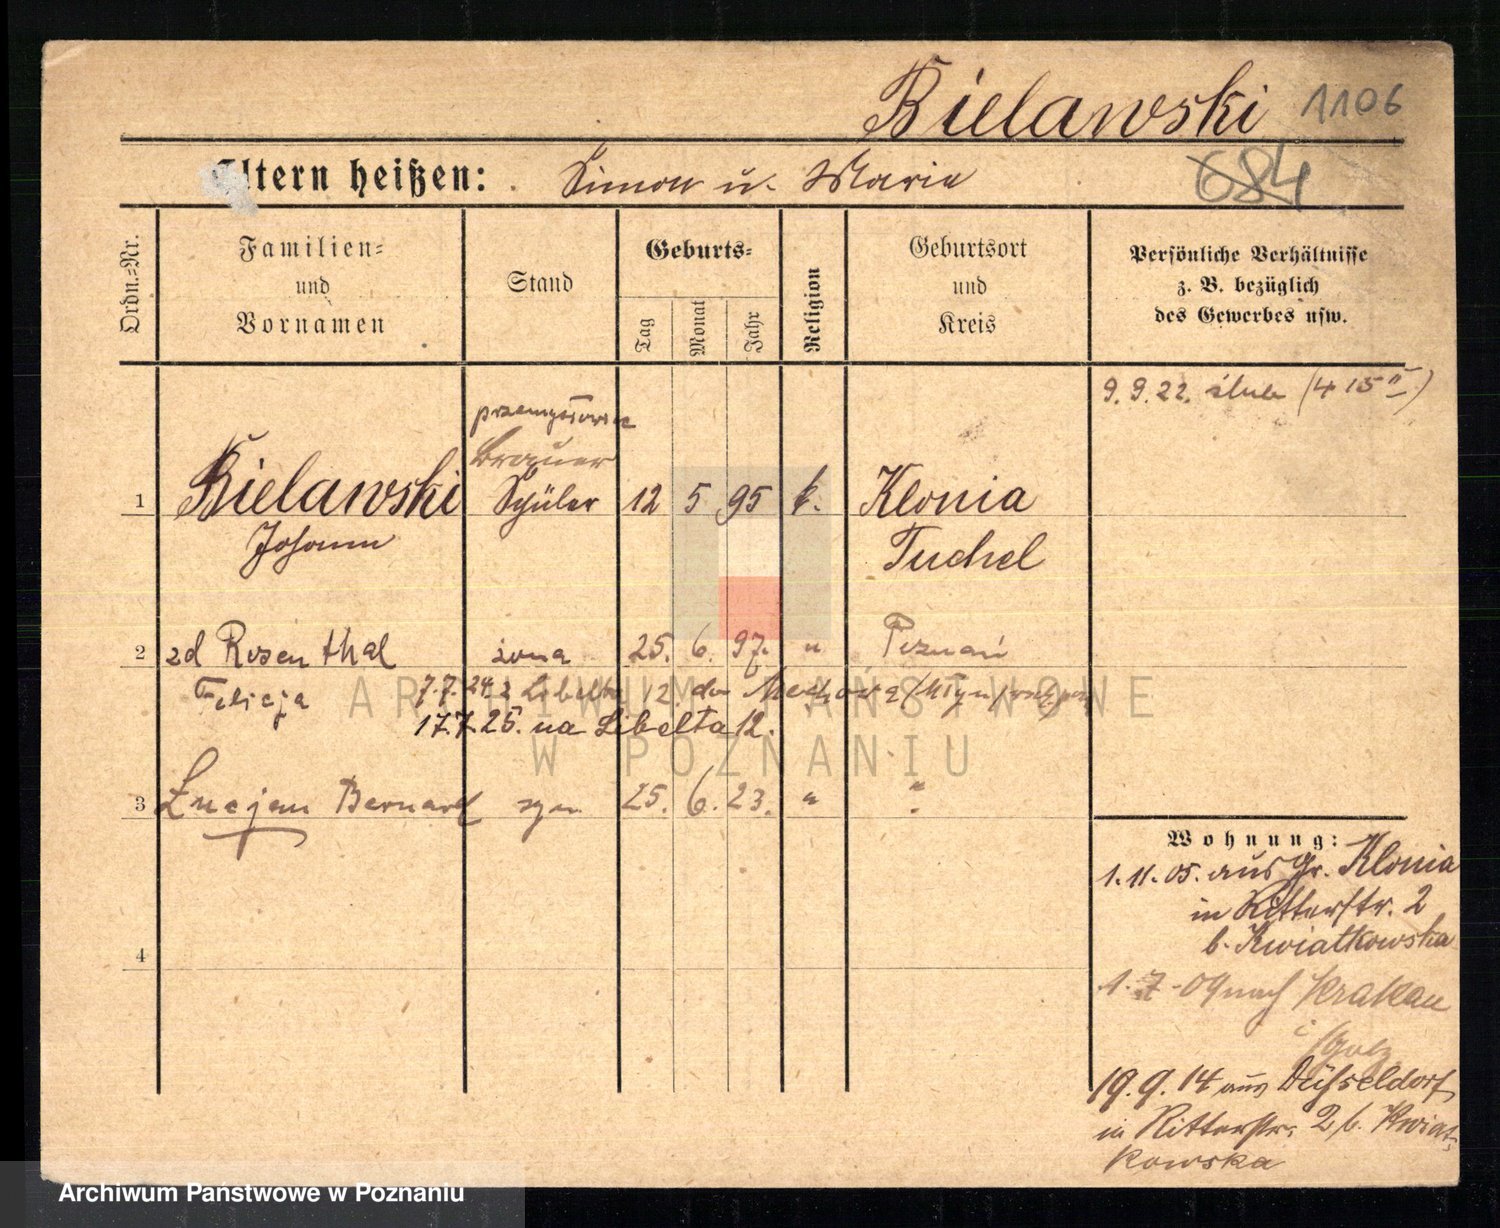 Bielawski 1106
Eltern heißen: Simon u. Maria 684
Ordn.-Nr.
Familien- und Vornamen
Stand
Geburts-
Tag
Monat
Jahr
Religion
Geburtsort und Kreis
Persönliche Verhältnisse
z. B. bezüglich
des Gewerbes usw.
9.9.22. ślub (415 II)
przemysłowiec
Brauer
1 Bielawski Schüler 12 5 95 k. Klonia
Johann Tuchel
2 zd Rosenthal żona 25. 6. 97. " Poznań
Felicja 7.7.24. z Libelta 12. do
17.7.25. na Libelta 12.
3 Łucjan Bernard syn 25. 6. 23. " "
4
Wohnung:
1.11.05. aus Gr. Klonia
in Ritterstr. 2
b. Kwiatkowska
1.7-09 nach Krakau
i/Galiz
19.9.14 aus Düsseldorf
in Ritterstr. 2 b. Kwiat-
kowska
ARCHIWUM PAŃSTWOWE
W POZNANIU
Archiwum Państwowe w Poznaniu